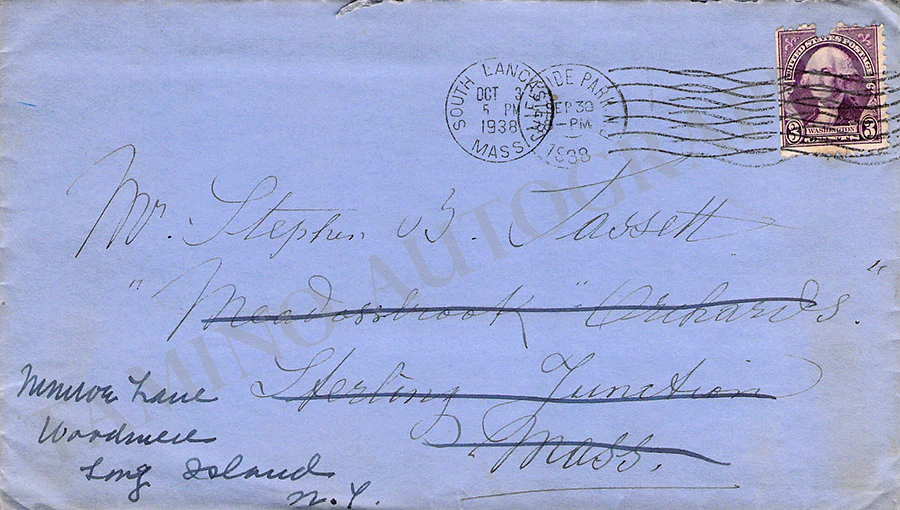 SOUTH LANCASTER
OCT 3
5 PM
1938
MASS.
HYDE PARK N.Y.
SEP 30
-PM
1938
UNITED STATES POSTAGE
WASHINGTON
3 3
Mr. Stephen B. Tassett
"Meadowbrook" Orchards."
Sterling Junction
Mass.
Monroe Lane
Woodmere
Long Island
N.Y.
TAMINO AUTOGRAPHS